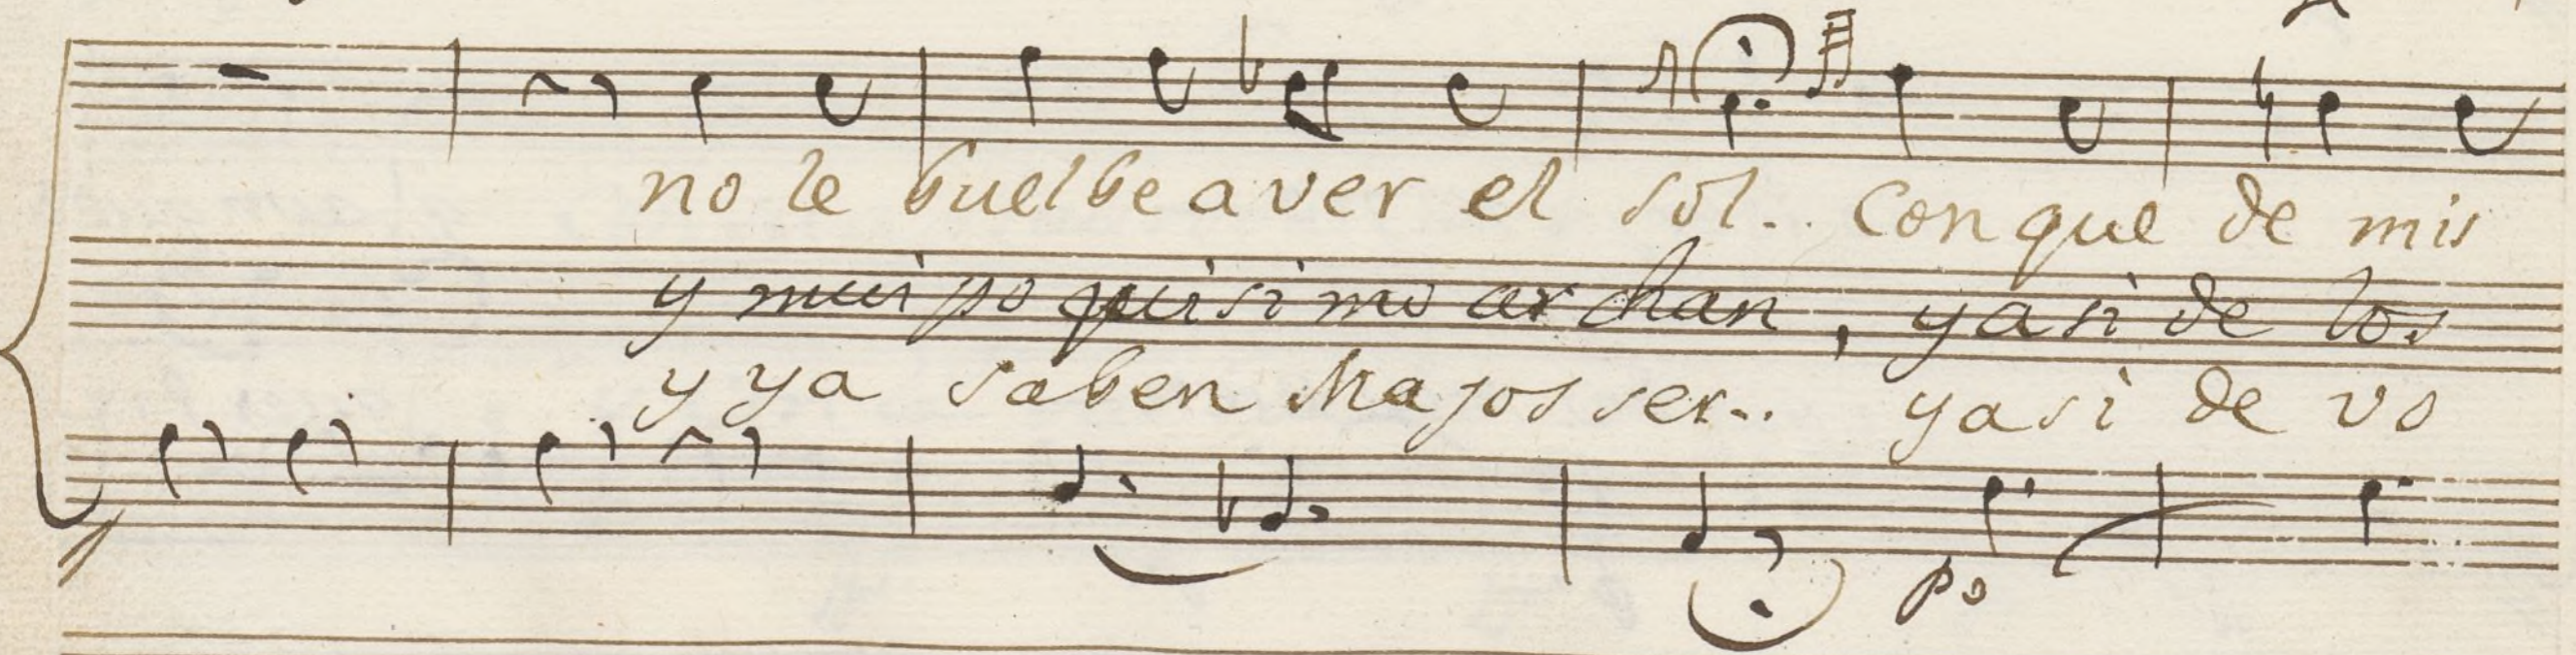 no le buelbe a ver el sol.. Con que de mis
y mui poquisimo archan, y asi de los
y ya saben Majos ser.. y asi de vo
po